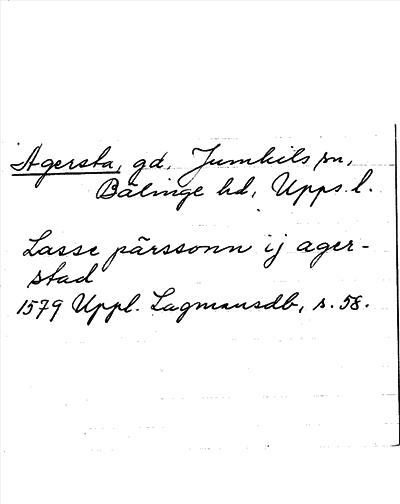 Agersta, gd, Jumkils sn,
Bälinge hd, Upps. l.
Lasse pärssonn ij ager-
stad
1579 Uppl. Lagmansdb, s. 58.